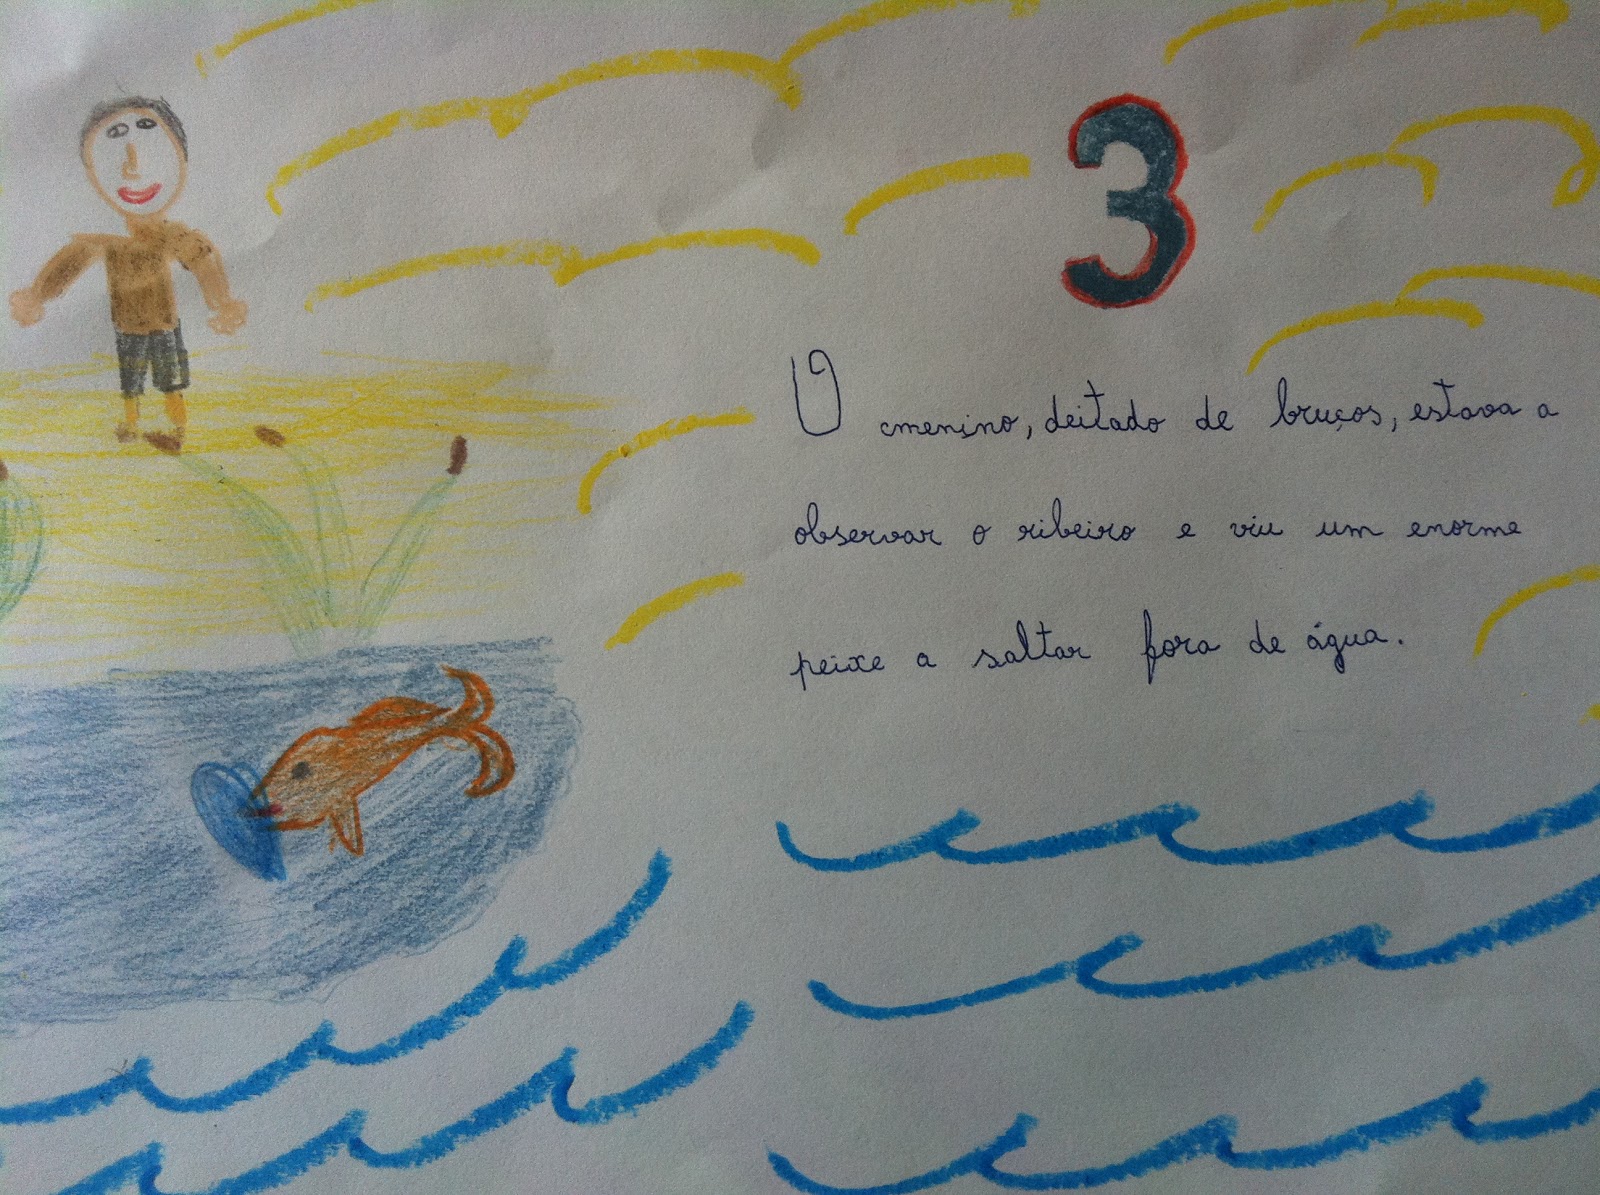 3
O menino, deitado de bruços, estava a
observar o ribeiro e viu um enorme
peixe a saltar fora de água.